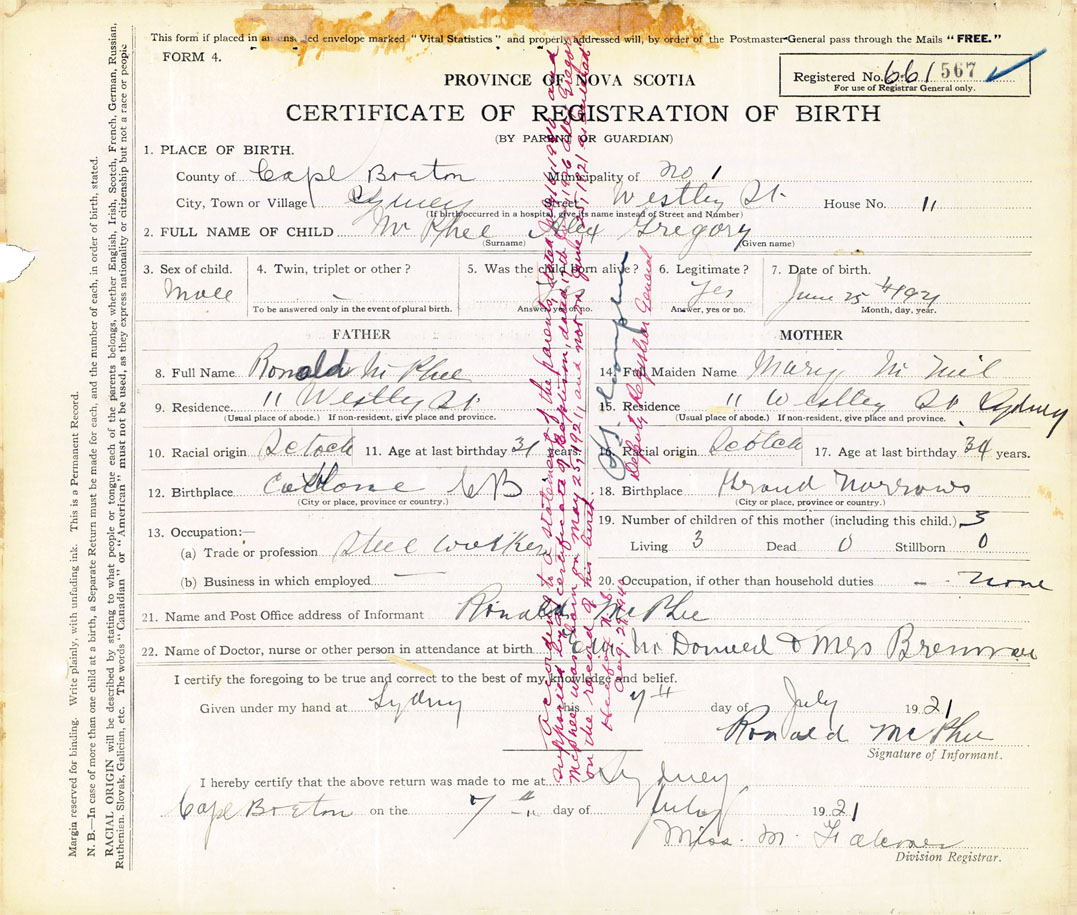 This form if placed in an unsealed envelope marked "Vital Statistics" and properly addressed will, by order of the Postmaster-General pass through the Mails "FREE."
FORM 4.
PROVINCE OF NOVA SCOTIA
Registered No. 661 567
For use of Registrar General only.
CERTIFICATE OF REGISTRATION OF BIRTH
(BY PARENT OR GUARDIAN)
1. PLACE OF BIRTH.
County of Cape Breton Municipality of No 1
City, Town or Village Sydney Street Westley St. House No. 11
(If birth occurred in a hospital, give its name instead of Street and Number)
2. FULL NAME OF CHILD Mc Phee Alex Gregory
(Surname) (Given name)
3. Sex of child. 4. Twin, triplet or other? 5. Was the child born alive? 6. Legitimate? 7. Date of birth.
Male – Yes Yes June 25th 1921
To be answered only in the event of plural birth. Answer, yes or no. Answer, yes or no. Month, day, year.
FATHER MOTHER
8. Full Name Ronald Mc Phee 14. Full Maiden Name Mary Mc Neil
9. Residence. 11 Westley St 15. Residence 11 Westley St. Sydney
(Usual place of abode.) If non-resident, give place and province. (Usual place of abode.) If non-resident, give place and province.
10. Racial origin Scotch 11. Age at last birthday 31 years. 16. Racial origin Scotch 17. Age at last birthday 34 years.
12. Birthplace C B 18. Birthplace Grand Narrows
(City or place, province or country.) (City or place, province or country.)
13. Occupation:— 19. Number of children of this mother (including this child.) 3
(a) Trade or profession Steel worker Living 3 Dead 0 Stillborn 0
(b) Business in which employed — 20. Occupation, if other than household duties – none
21. Name and Post Office address of Informant Ronald McPhee
22. Name of Doctor, nurse or other person in attendance at birth Mc Donald & Mrs Brennan
I certify the foregoing to be true and correct to the best of my knowledge and belief.
Given under my hand at Sydney this 7th day of July 1921
Ronald McPhee
Signature of Informant.
I hereby certify that the above return was made to me at Sydney,
Cape Breton on the 7th day of July 1921
Miss. M.
Division Registrar.
Margin reserved for binding. Write plainly, with unfading ink. This is a Permanent Record.
N. B.—In case of more than one child at a birth, a Separate Return must be made for each, and the number of each, in order of birth, stated.
RACIAL ORIGIN will be described by stating to what people or tongue each of the parents belongs, whether English, Irish, Scotch, French, German, Russian,
Ruthenian, Slovak, Galician, etc. The words "Canadian" or "American" must not be used, as they express nationality or citizenship but not a race or people
According to a statement of the parents, dated 1940 and
supported by a certificate of Baptism, dated Alex Gregory
McPhee was born on May 25, 1921, and not on June 25, 1921 as outlined
on the record of his birth.
Halifax N.S.
Aug. 29, 1940
Deputy Registrar General